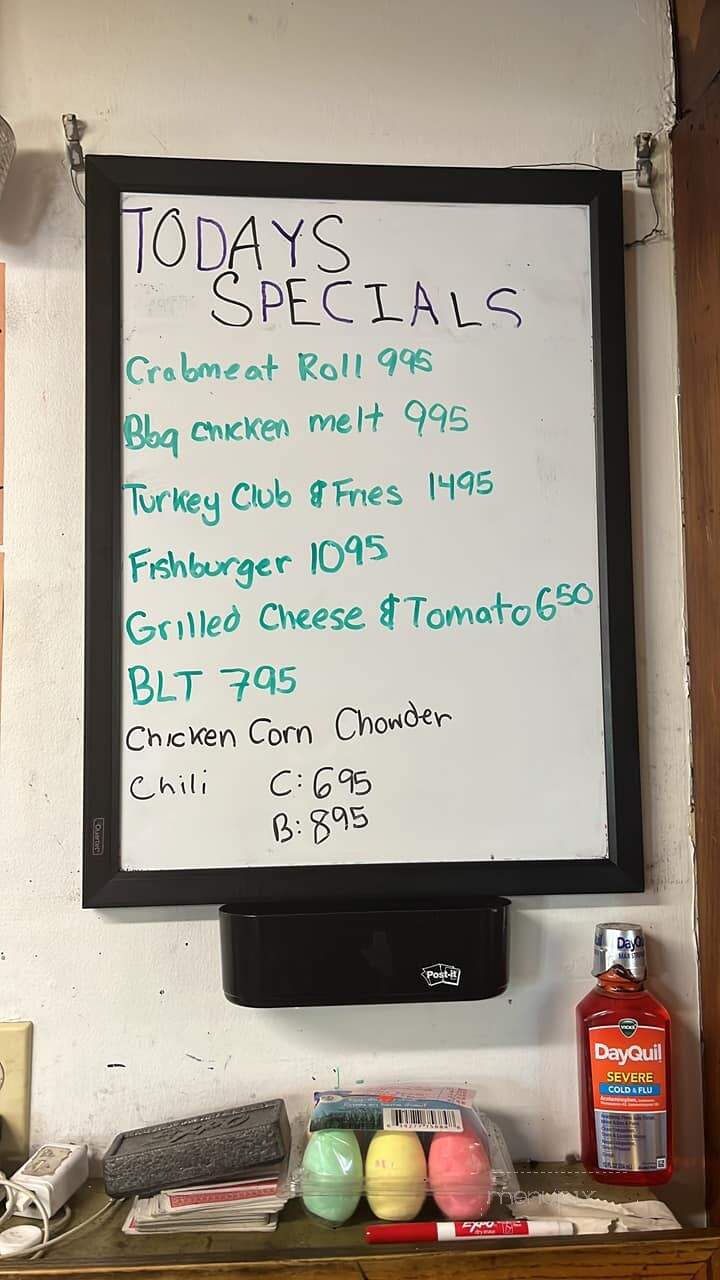 TODAYS
SPECIALS
Crabmeat Roll 995
Bbq chicken melt 995
Turkey Club & Fries 1495
Fishburger 1095
Grilled Cheese & Tomato 650
BLT 795
Chicken Corn Chowder
Chili C: 695
B: 895
Quartet
Post-it
DayQ
VICKS
DayQuil
SEVERE
COLD & FLU
Acetaminophen,
EXPO
menupix